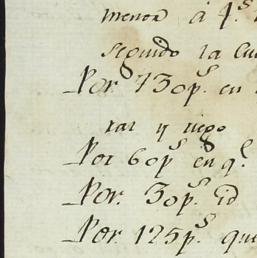 menor á 4.s
segundo la cu
Por 730 p.s en
rar y riego
Por 60 p.s en q.e
Por. 30 p.s id
Por. 125 p.s que